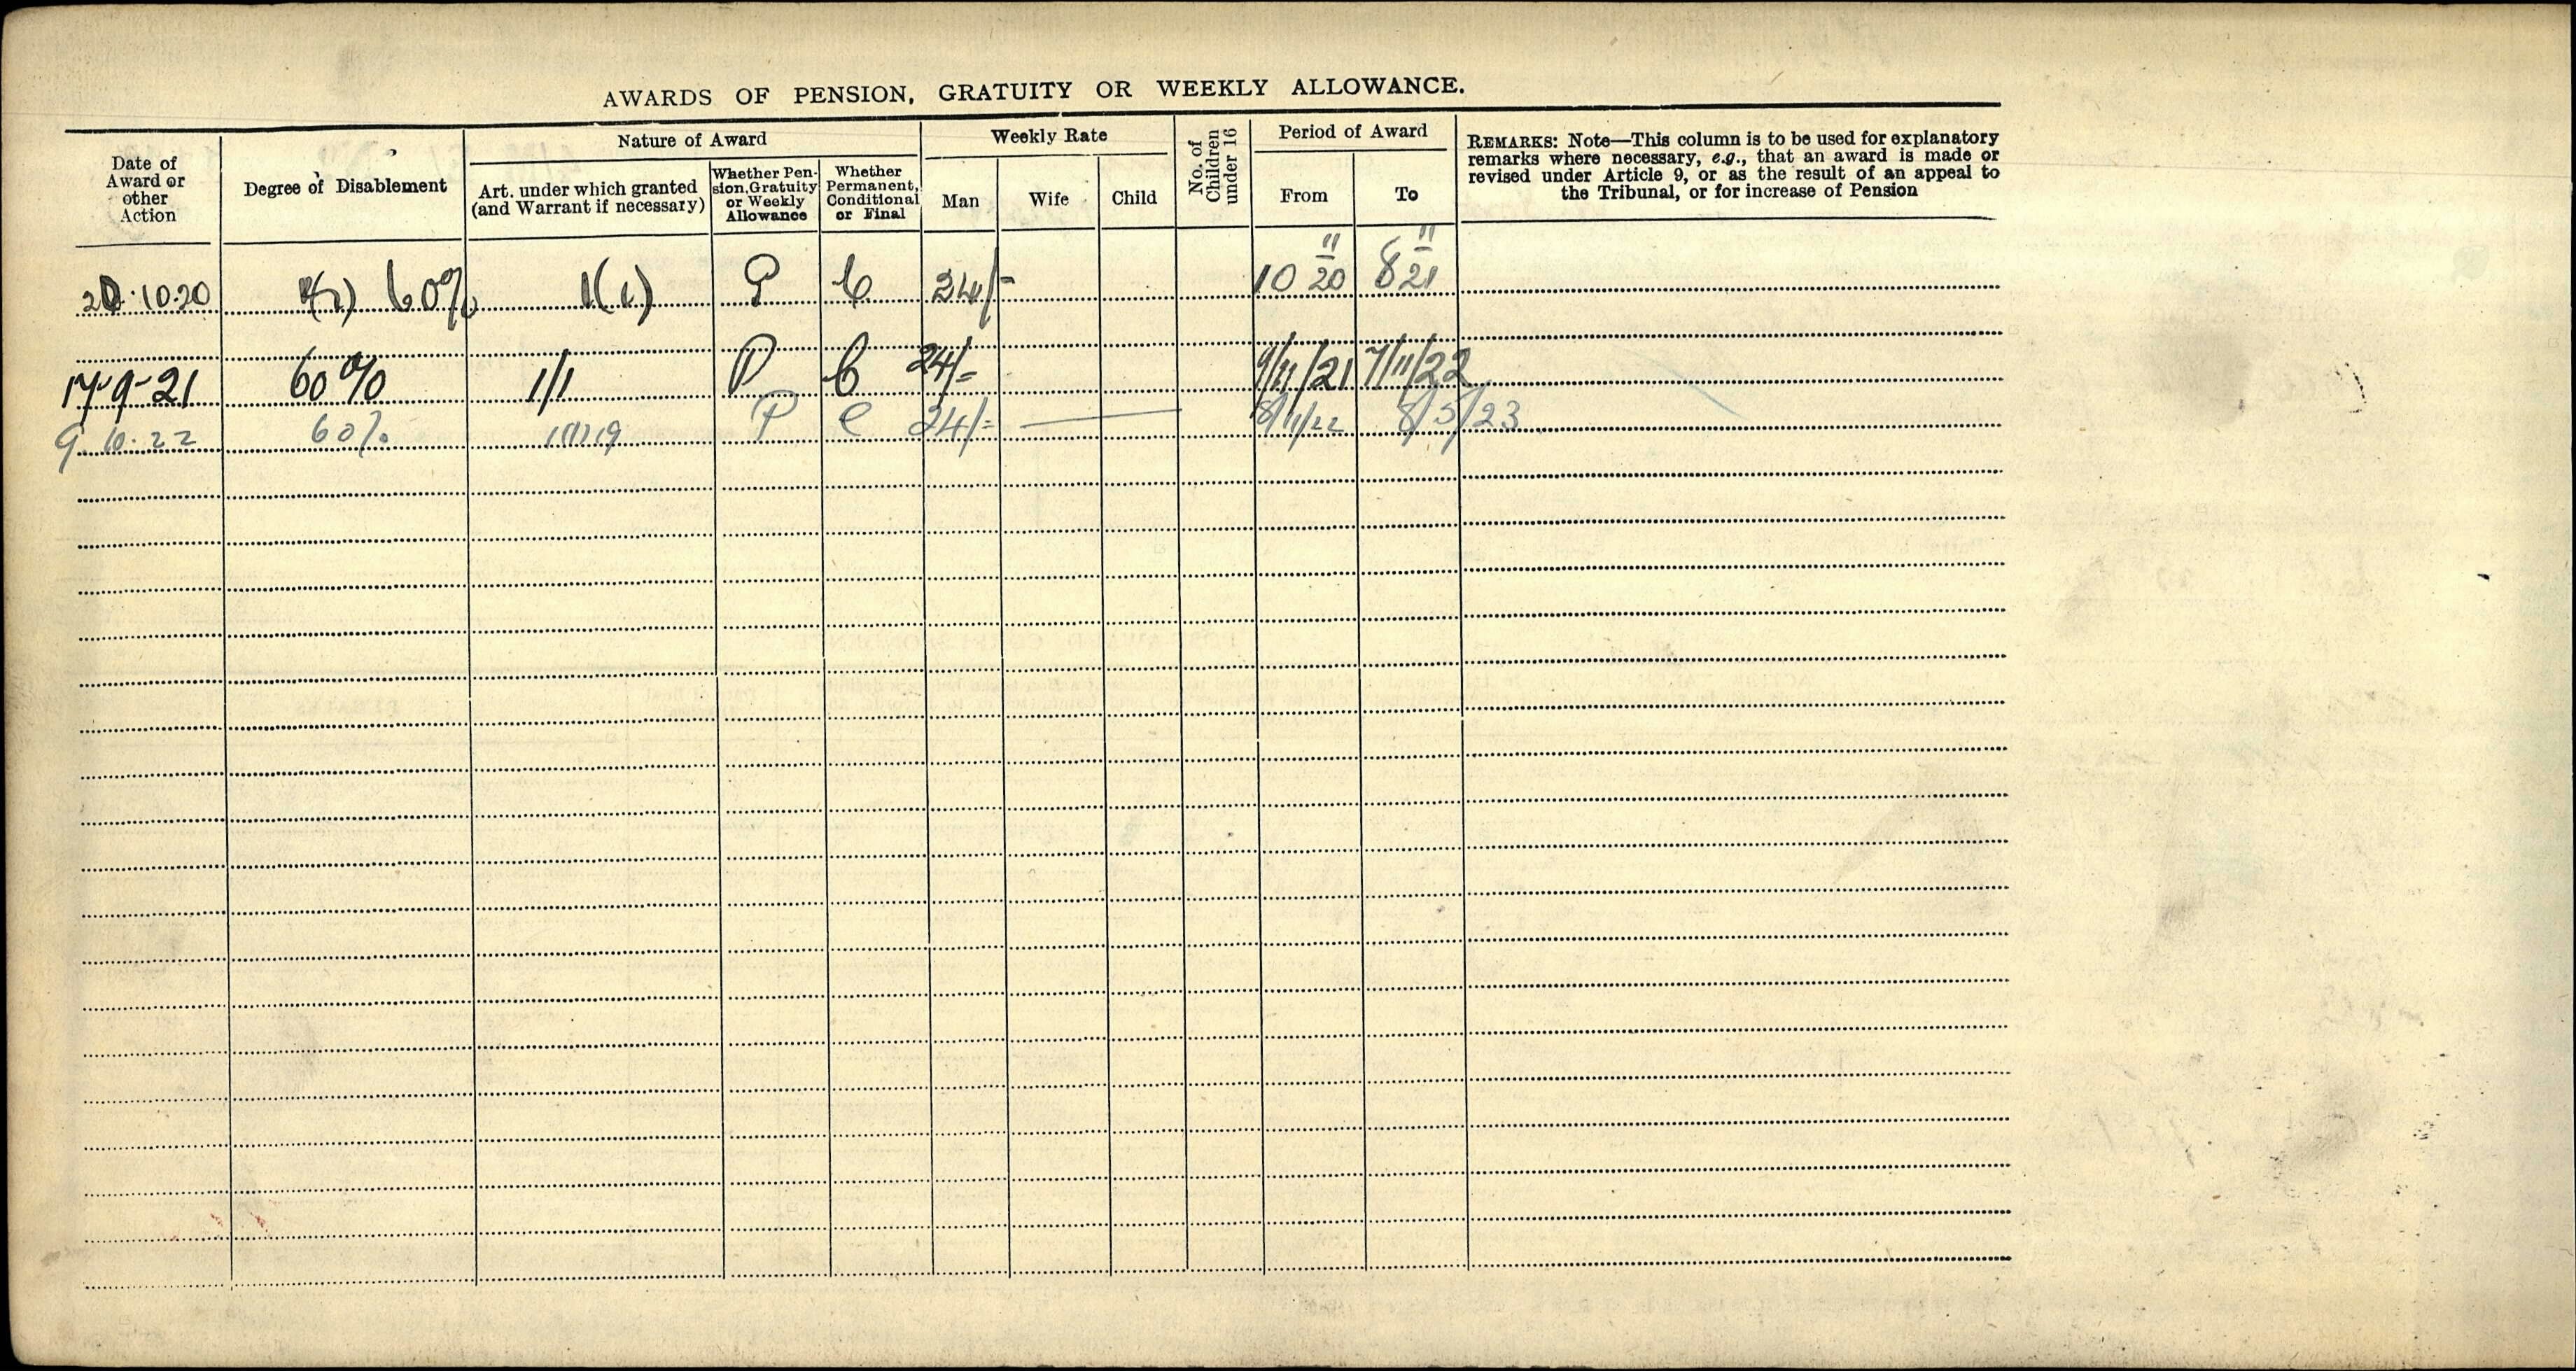 AWARDS OF PENSION, GRATUITY OR WEEKLY ALLOWANCE.
Date of Award or other Action
Degree of Disablement
Nature of Award
Art. under which granted (and Warrant if necessary)
Whether Pension, Gratuity or Weekly Allowance
Whether Permanent, Conditional or Final
Weekly Rate
Man
Wife
Child
No. of Children under 16
Period of Award
From
To
REMARKS: Note—This column is to be used for explanatory
remarks where necessary, e.g., that an award is made or
revised under Article 9, or as the result of an appeal to
the Tribunal, or for increase of Pension
20.10.20 60% 1(1) P C 24/- 10 11/20 8 11/21
17-9-21 60% 1/1 P C 24/= 9/11/21 7/11/22
9.10.22 60% 1(1)19 P C 24/= 8/11/22 8/5/23